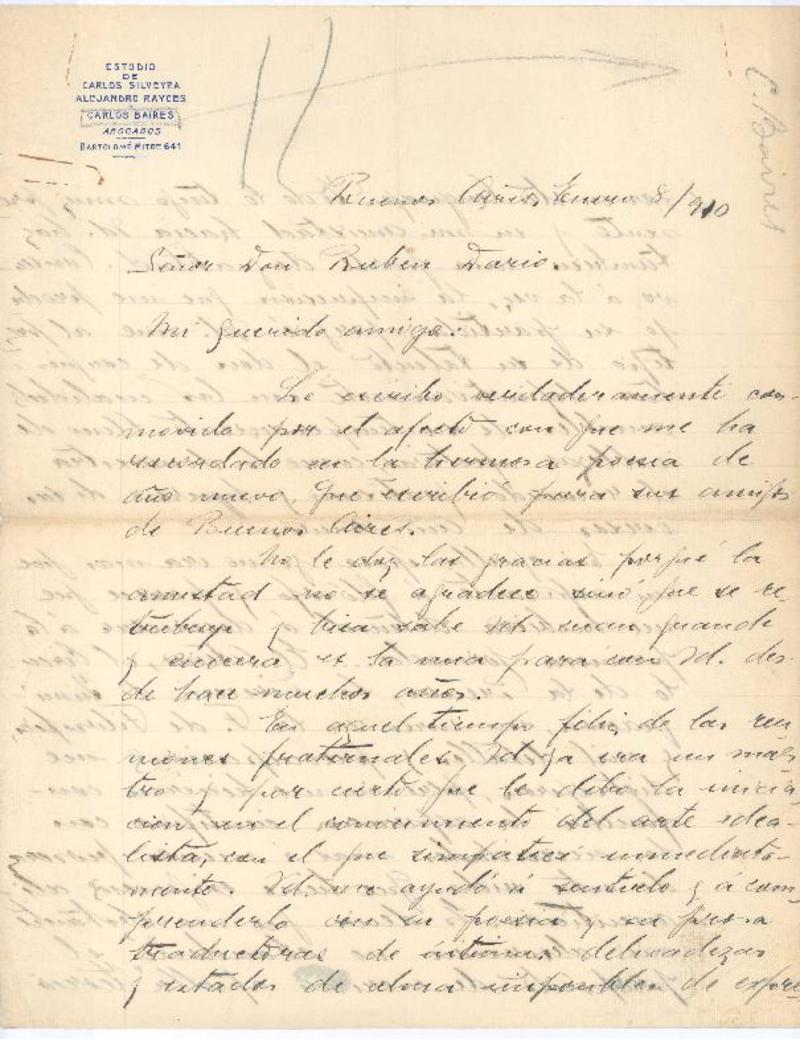 ESTUDIO
DE
CARLOS SILVEYRA
ALEJANDRO RAYCES
CARLOS BAIRES
ABOGADOS
BARTOLOMÉ MITRE 641
C. Baires
Buenos Aires, Enero 8/910
Señor Don Ruben Dario.
Mi querido amigo:
Le escribo verdaderamente con-
movido por el afecto con que me ha
recordado en la hermosa poesia de
año nuevo, que escribió para sus amigos
de Buenos Aires.
No le doy las gracias porqué la
amistad no se agradece sinó que se re-
tribuye y bien sabe Vd. cuan grande
y sincera es la mia para con Vd. des-
de hace muchos años.
En aquel tiempo feliz de las reu-
niones fraternales Vd ya era un maes
tro y por cierto que le debo la inicia-
cion en el conocimiento del arte idea-
lista, con el que simpaticé inmediata-
mente. Vd. me ayudó á sentirlo y á com-
prenderlo con su poesia y su prosa
traductoras de íntimas delicadezas
y estados de alma imposibles de expre